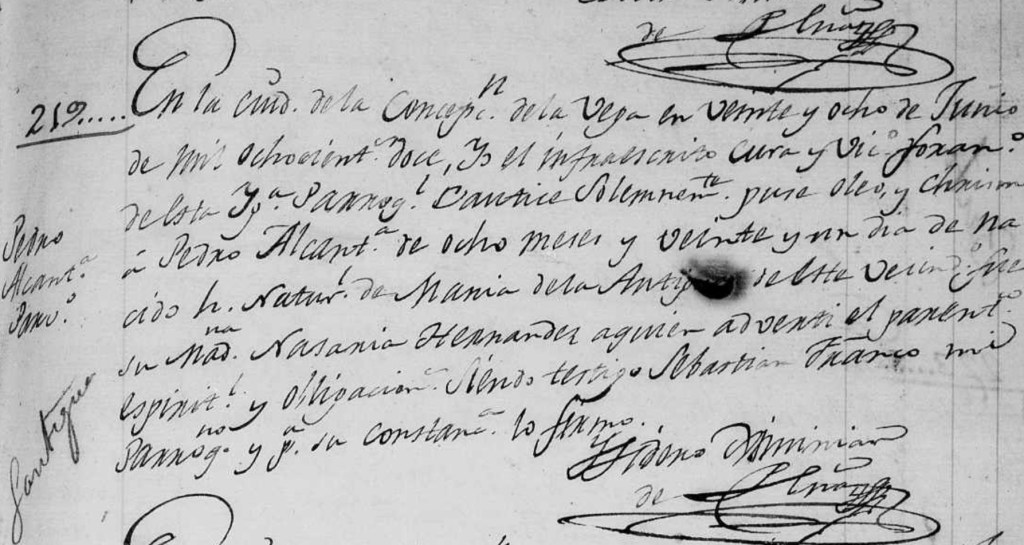 de Peña
219.....
En la ciud. de la Concepc.n de la Vega en veinte y ocho de Junio
de mil ochocient.s doce, Yo el infraescrito Cura y Vic.o foran.o
de esta Yg.a Parroq.l Bautice Solemnem.te puse oleo, y Chrisma
á Pedro Alcant.a de ocho meses y veinte y un dia de na
cido h. Natur.l de Maria de la Antig de este vecind.o fue
su Mad.na Nasaria Hernandes aquien adverti el parent.o
espirit.l y obligacion.s Siendo testigo Sebastian Franco mi
Parroq.no y p.a su constan.a lo firmo.
Pedro
Alcant.a
Parv.o
Ysidoro
de Peña